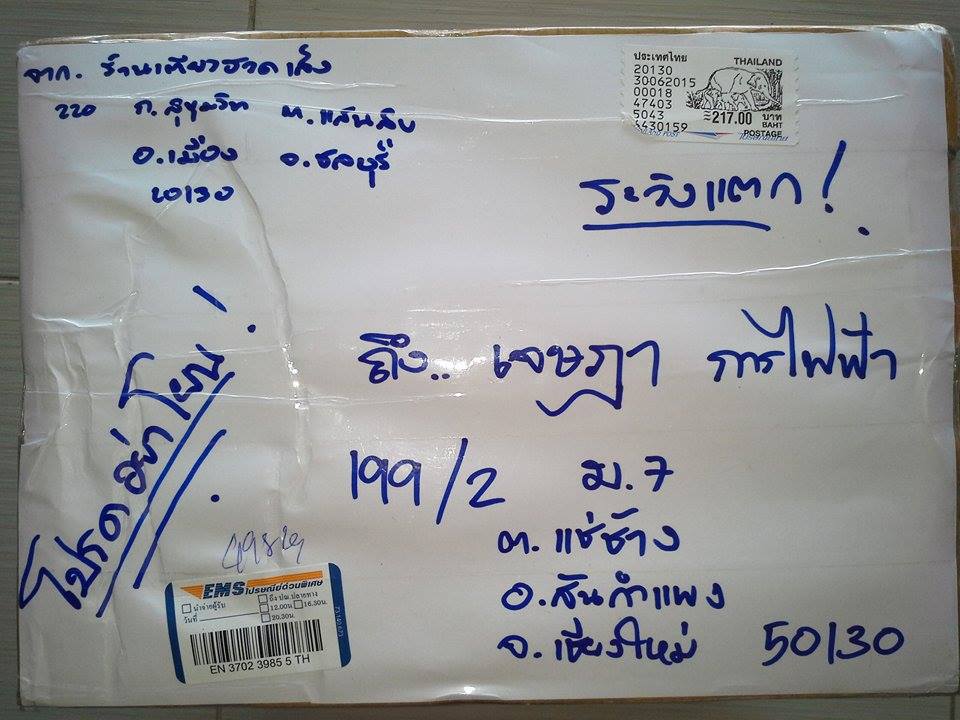 จาก. ร้านเตี่ยวฮวดเส็ง
220 ถ.สุขุมวิท ต.แสนสุข
อ.เมือง จ.ชลบุรี
20130
ประเทศไทย THAILAND
20130
30062015
00018
47403
5043
4430159
=217.00 บาท
BAHT
POSTAGE
ระวังแตก!
ถึง.. เจษฎา การไฟฟ้า
199/2 ม.7
ต.แช่ช้าง
อ.สันกำแพง
จ.เชียงใหม่ 50130
โปรดอย่าโยน!
EMS ไปรษณีย์ด่วนพิเศษ
นำจ่ายผู้รับ ถึง ปณ.ปลายทาง
วันที่ 12.00น. 16.30น.
20.30น.
EN 3702 3985 5 TH